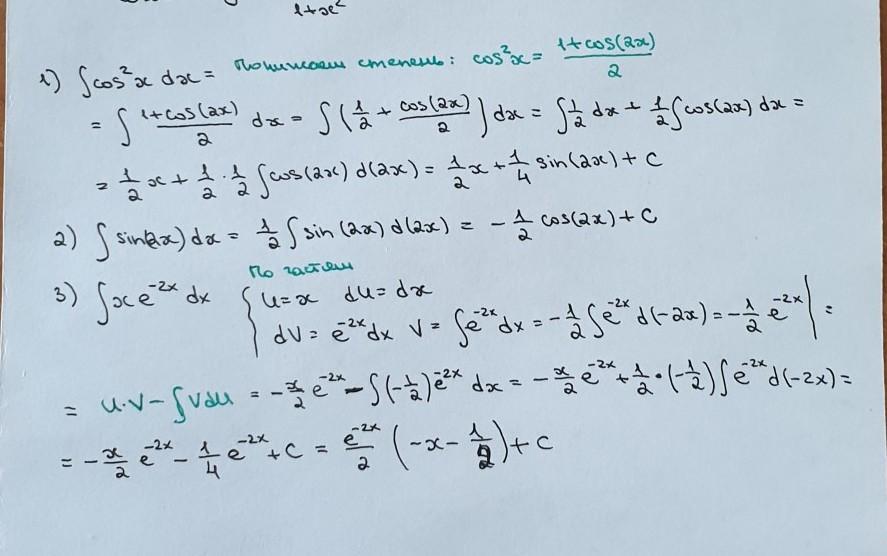 1+x²
1) ∫cos²x dx = Понижаем степень: cos²x = (1+cos(2x))/2
= ∫ (1+cos(2x))/2 dx = ∫(1/2 + cos(2x)/2) dx = ∫1/2 dx + 1/2 ∫cos(2x) dx =
= 1/2 x + 1/2 · 1/2 ∫cos(2x) d(2x) = 1/2 x + 1/4 sin(2x) + C
2) ∫ sin(2x) dx = 1/2 ∫ sin (2x) d(2x) = - 1/2 cos(2x) + C
По частям
3) ∫x e^(-2x) dx { u = x du = dx
dV = e^(-2x) dx V = ∫e^(-2x) dx = -1/2 ∫e^(-2x) d(-2x) = -1/2 e^(-2x) | =
= u·V - ∫Vdu = -x/2 e^(-2x) - ∫(-1/2) e^(-2x) dx = -x/2 e^(-2x) + 1/2 · (-1/2) ∫e^(-2x) d(-2x) =
= -x/2 e^(-2x) - 1/4 e^(-2x) + C = e^(-2x)/2 (-x - 1/2) + C